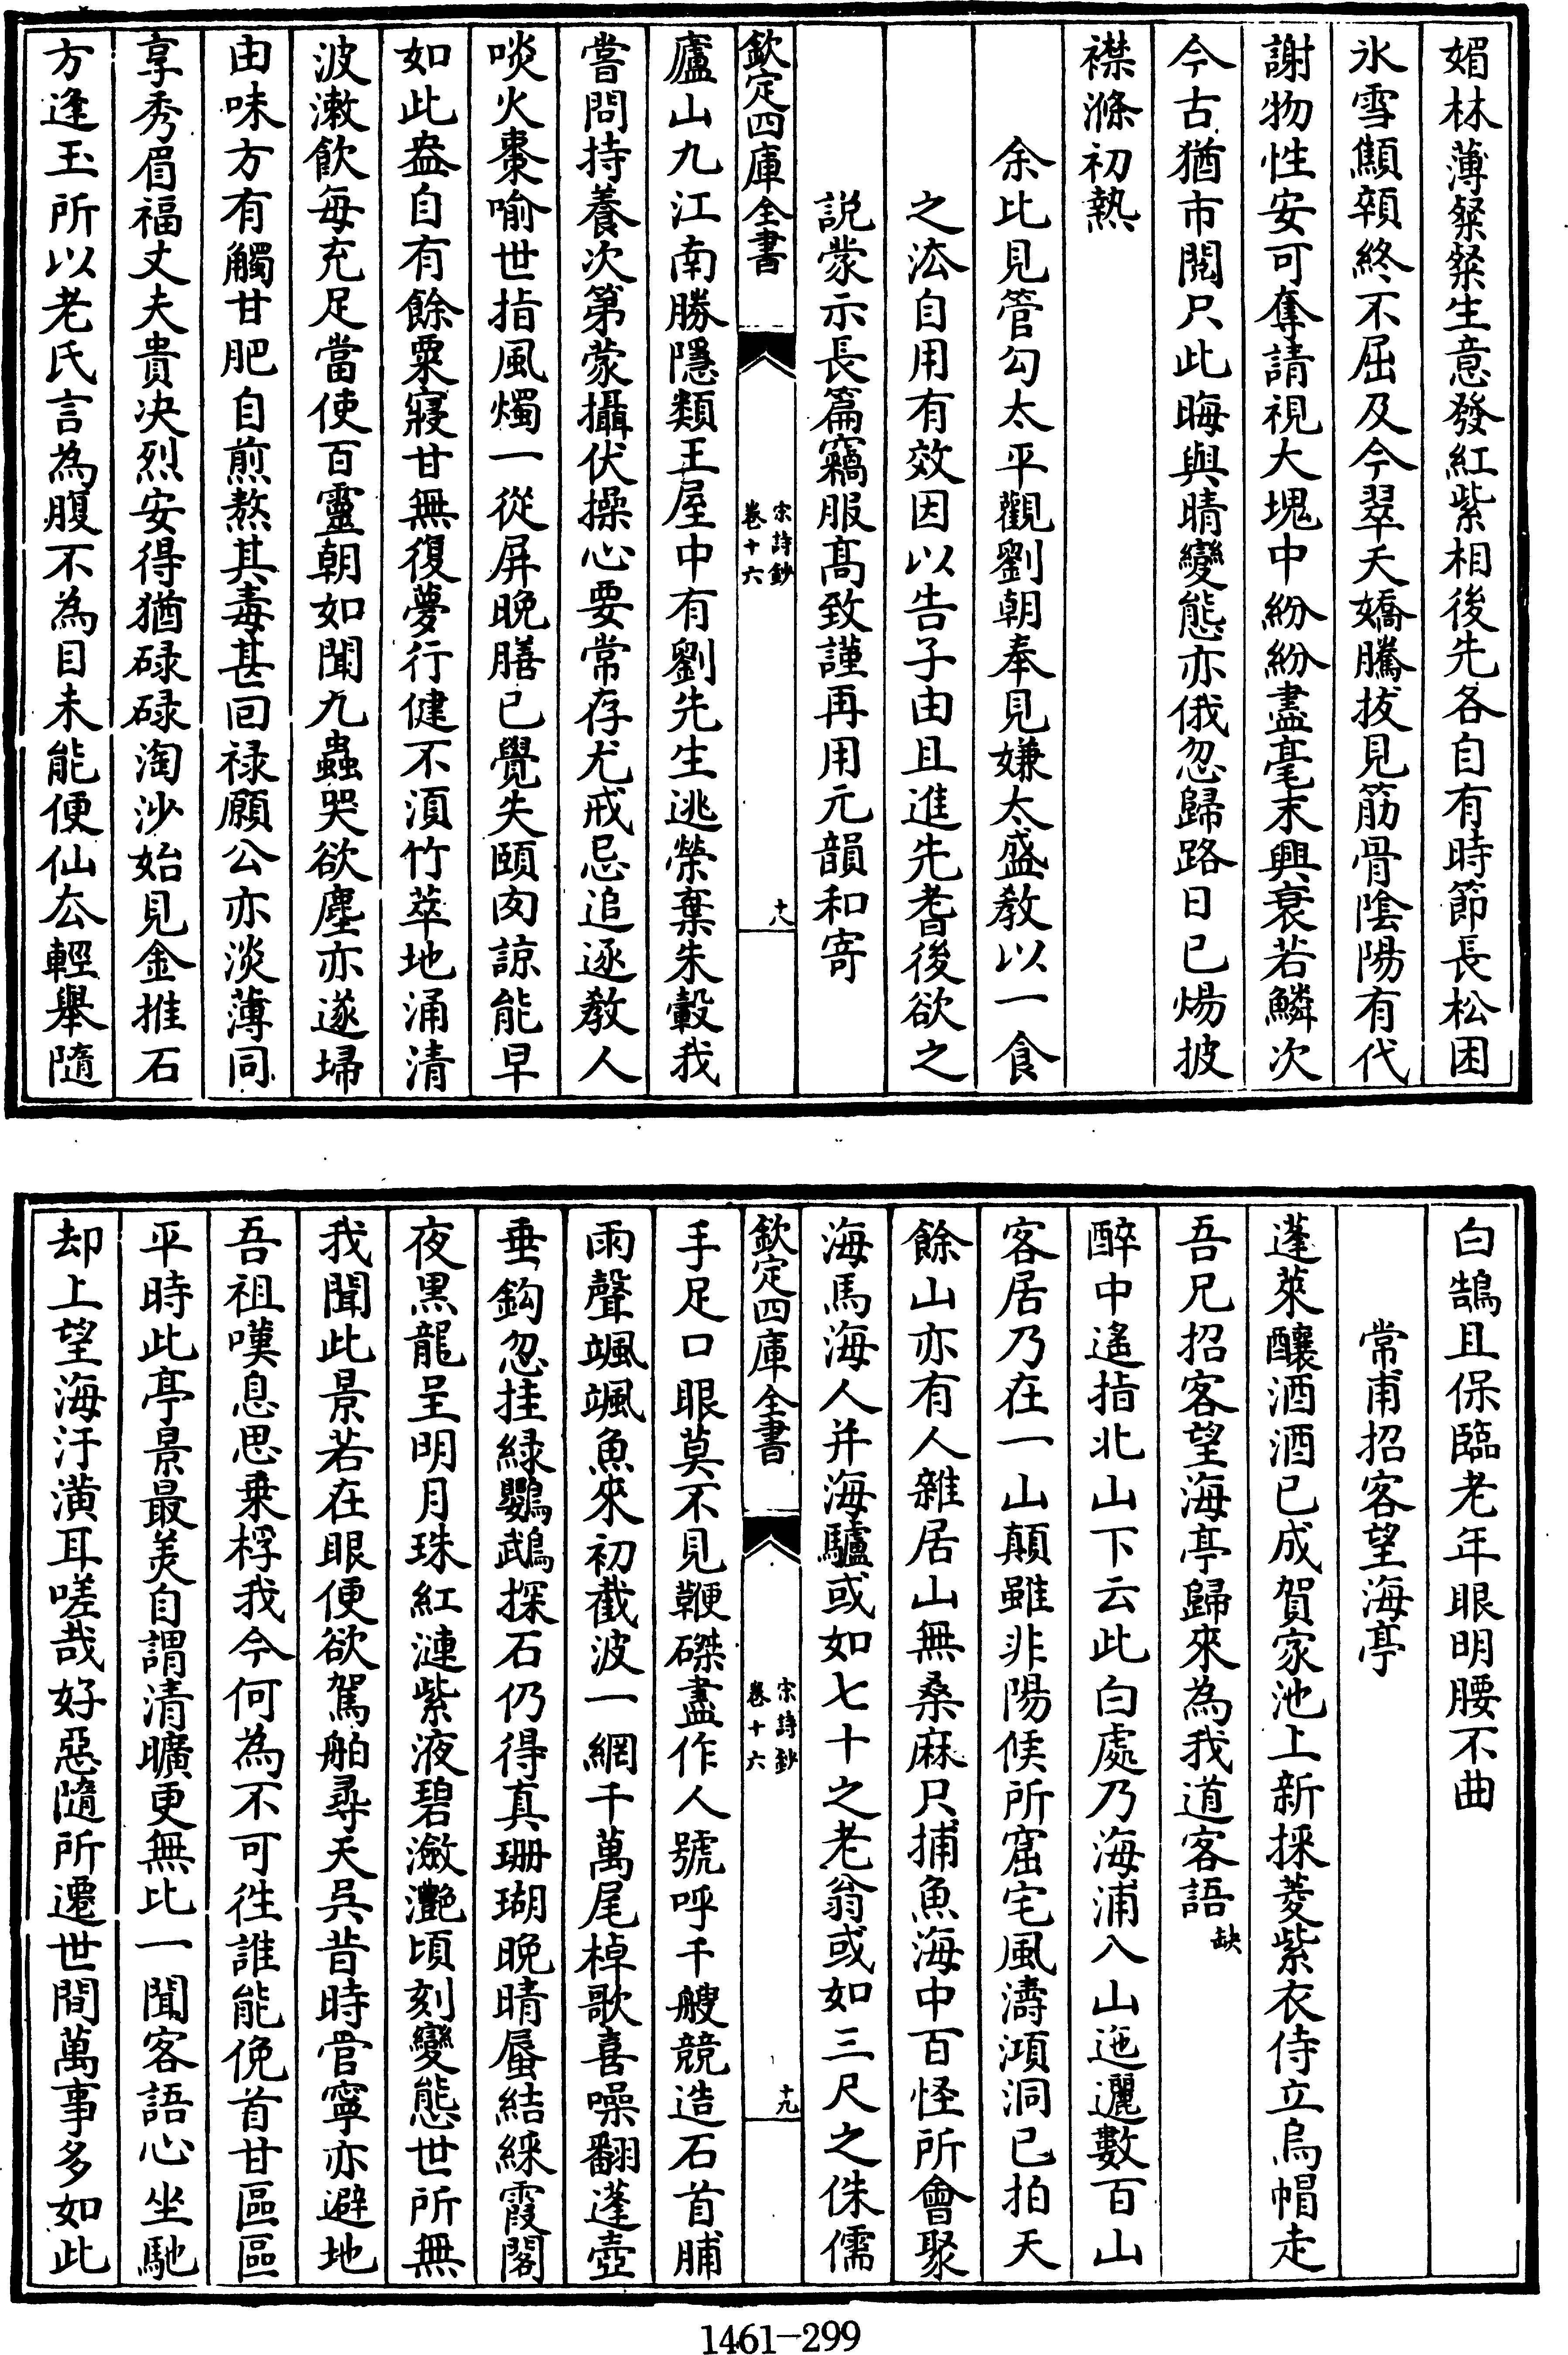 媚林薄粲粲生意發紅紫相後先各自有時節長松困
氷雪顦顇終不屈及今翠夭嬌騰拔見筋骨隂陽有代
謝物性安可奪請視大塊中紛紛盡毫末興衰若鱗次
今古猶市閲只此晦與晴變態亦俄忽歸路日已煬披
襟滌初熱
余比見管勾太平觀劉朝奉見嫌太盛教以一食
之㳒自用有效因以告子由且進先耆後欲之
説蒙示長篇竊服高致謹再用元韻和寄
欽定四庫全書
宋詩鈔
卷十六
十八
廬山九江南勝隱類王屋中有劉先生逃榮棄朱轂我
嘗問持養次第蒙攝伏操心要常存尤戒忌追逐教人
啖火棗喻世指風燭一從屏晚膳已覺失頤肉諒能早
如此盎自有餘粟寢甘無復夢行健不湏竹萃地涌清
波漱飲每充足當使百靈朝如聞九蟲哭欲塵亦遂埽
由味方有觸甘肥自煎熬其毒甚回禄願公亦淡薄同
享秀眉福丈夫貴决烈安得猶碌碌淘沙始見金推石
方逢玉所以老氏言為腹不為目未能便仙厺輕舉隨
白鵠且保臨老年眼明腰不曲
常甫招客望海亭
蓬萊釀酒酒已成賀家池上新採菱紫衣侍立烏帽走
吾兄招客望海亭歸來為我道客語缺
醉中遙指北山下云此白處乃海浦入山迤邐數百山
客居乃在一山顛雖非陽候所窟宅風濤澒洞已拍天
餘山亦有人雜居山無桑麻只捕魚海中百怪所會聚
海馬海人并海驢或如七十之老翁或如三尺之侏儒
欽定四庫全書
宋詩鈔
卷十六
十九
手足口眼莫不見鞭磔盡作人號呼千艘競造石首脯
雨聲颯颯魚來初截波一網千萬尾棹歌喜噪翻蓬壺
垂鈎忽挂綠鸚鵡探石仍得真珊瑚晚晴蜃結綵霞閣
夜黒龍呈明月珠紅漣紫液碧瀲灧頃刻變態世所無
我聞此景若在眼便欲駕舶尋天吳昔時管寧亦避地
吾祖嘆息思乗桴我今何為不可徃誰能俛首甘區區
平時此亭景最美自謂清曠更無比一聞客語心坐馳
却上望海汙潢耳嗟哉好惡隨所遷世間萬事多如此
1461-299